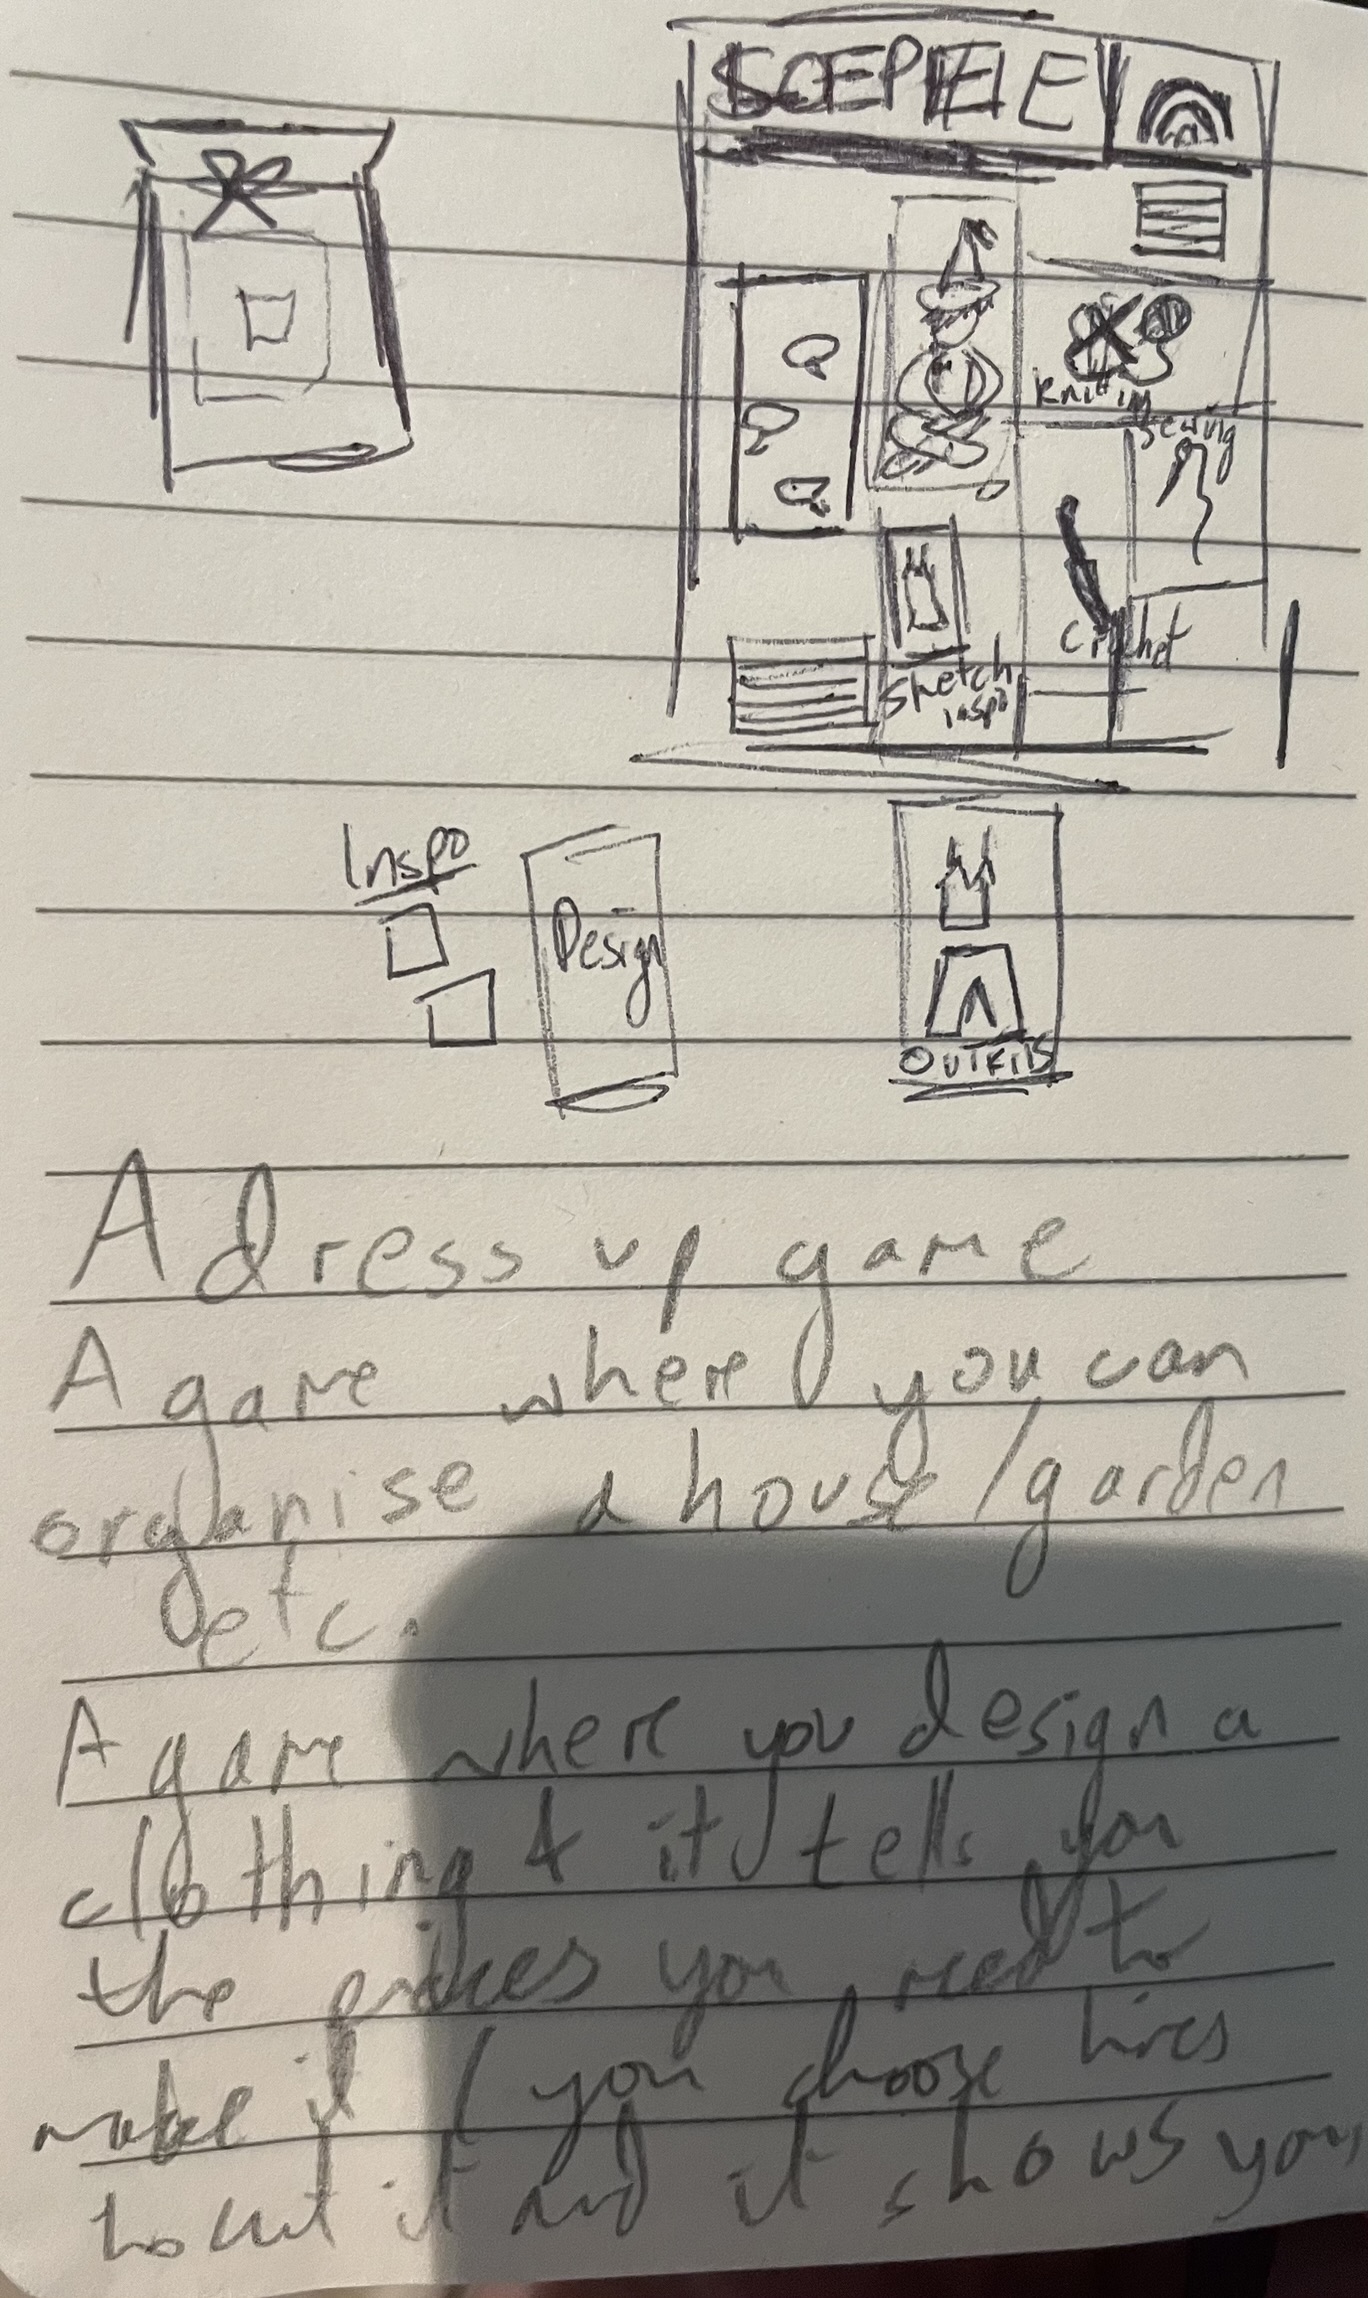 Knitting
Sewing
Crochet
Sketch
inspo
Inspo
Design
OUTFITS
A dress up game
A game where you can
organise a house/garden
etc.
A game where you design a
clothing & it tells you
the you need to
make it / you choose lines
to cut it and it shows you